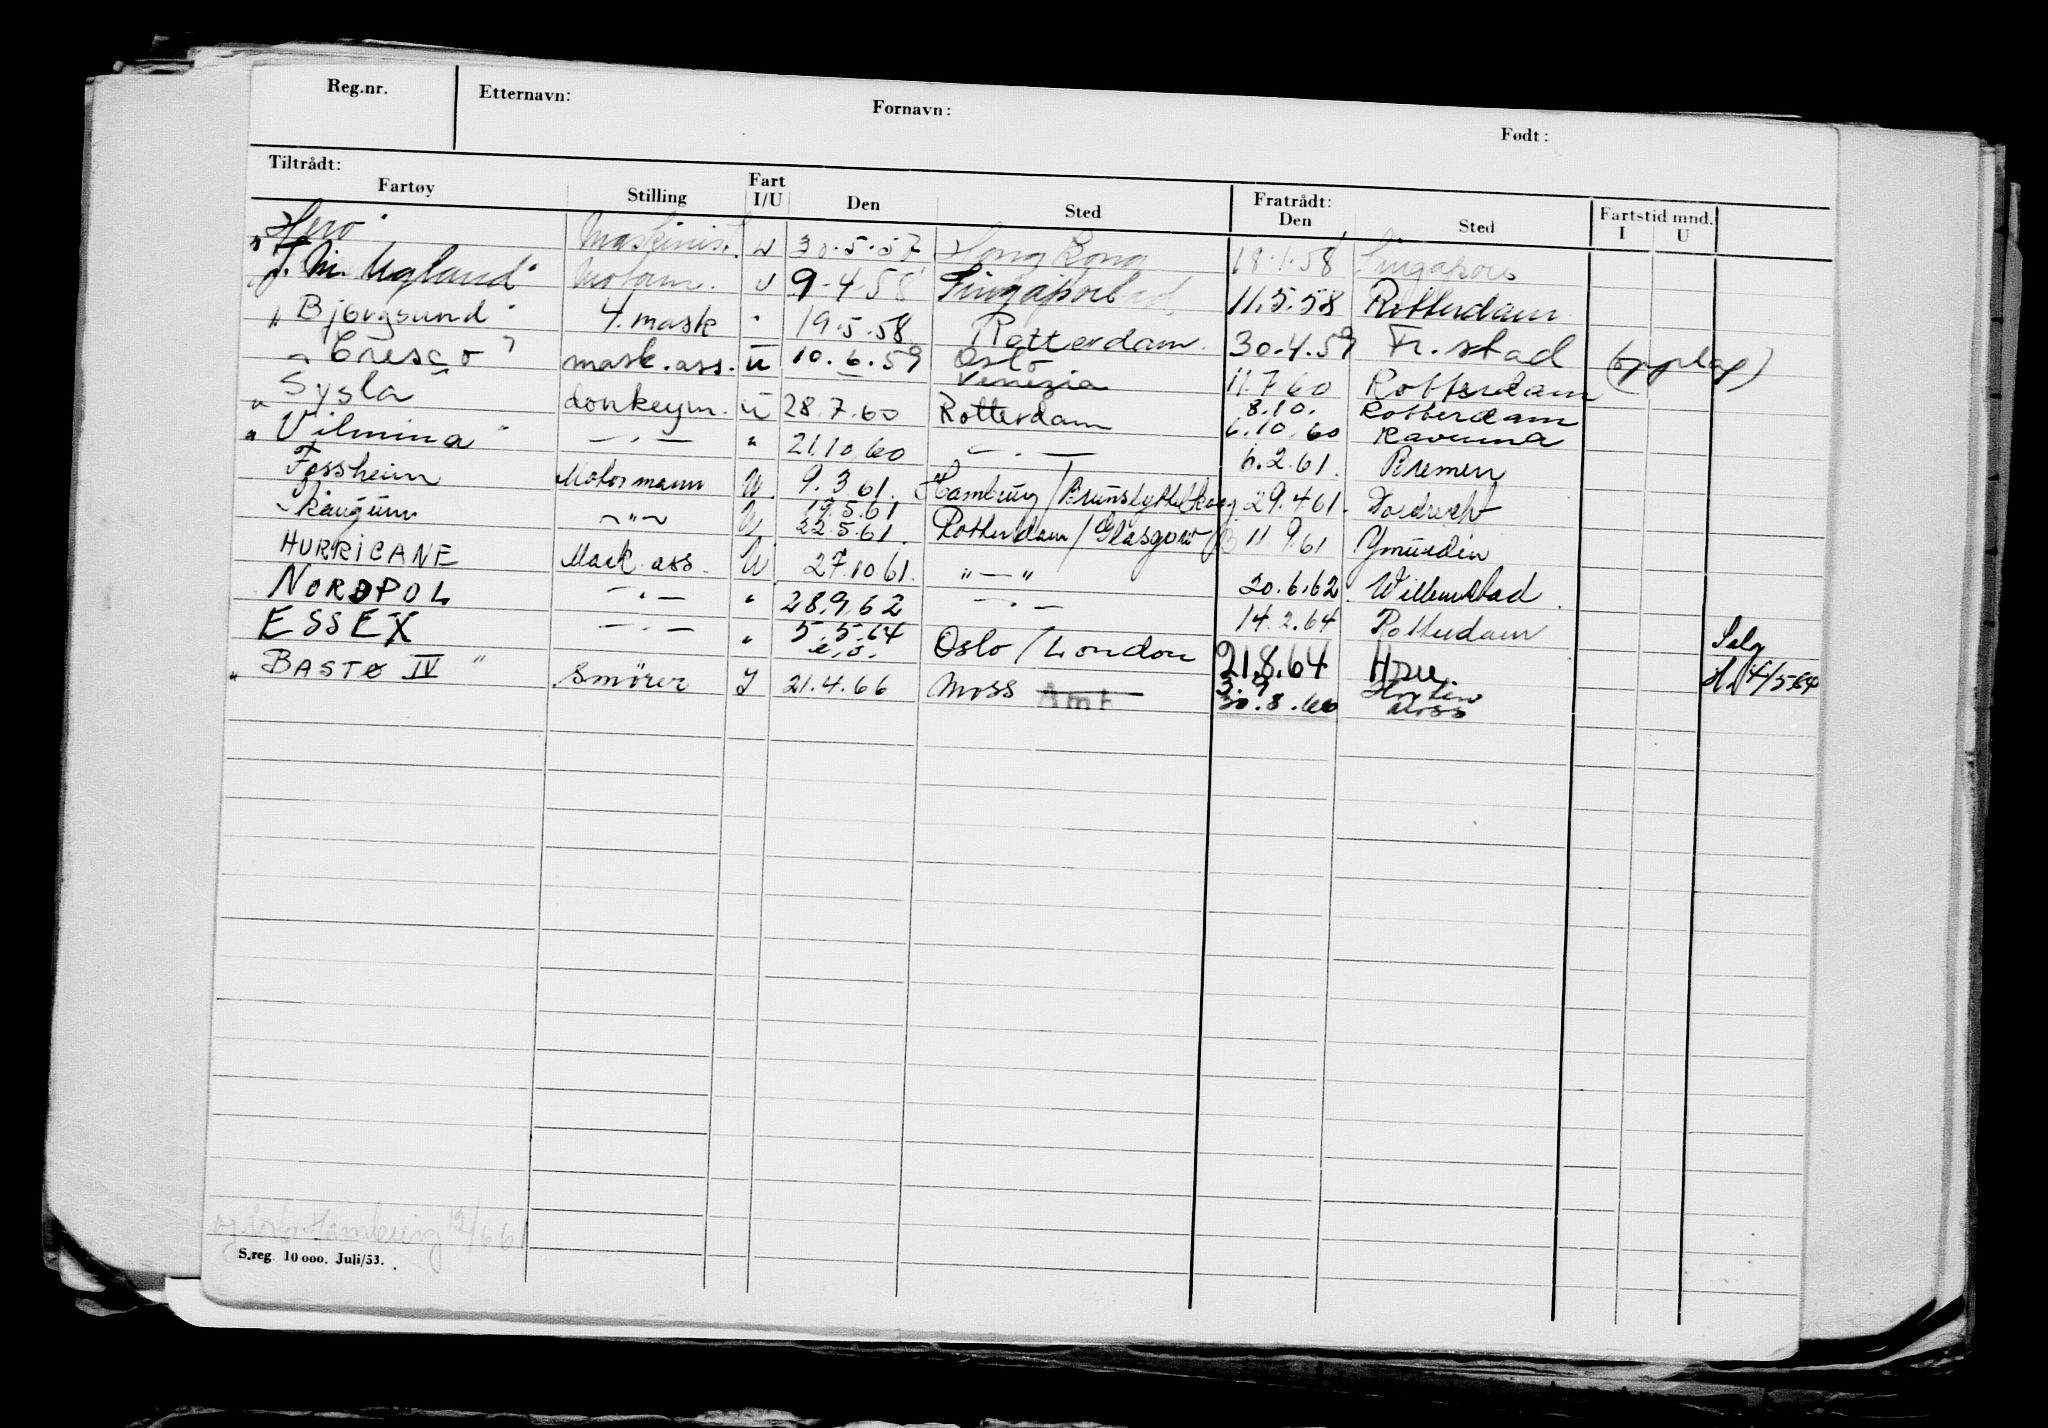 Reg.nr. Etternavn: Fornavn: Født:
Tiltrådt: Fratrådt:
Fartøy Stilling Fart I/U Den Sted Den Sted Fartstid mnd. I U
"Hero" Maskinist. U 30.5.57 Hong Kong 18.1.58 Singapore
"J. M. Ugland" Motorm. U 9-4-58 Singapore 11.5.58 Rotterdam
"Bjørgsund" 4. mask " 19.5.58 Rotterdam. 30.4.59 Fr.stad (opplag)
"Cresco" mask. ass. u 10.6.59 Oslo Venezia 11.7.60 Rotterdam
"Sysla donkeym. u 28.7.60 Rotterdam 8.10. Rotterdam 6.10.60 Ravenna
"Vilmina" — " — " 21.10.60 — . — 6.2.61. Bremen
Fossheim Motormann U 9.3.61. Hamburg / Brunsbyttelkoog 29.4.61. Dordrecht
Skaugum — " — U 19.5.61 22.5.61. Rotterdam / Glasgow 11.9.61 Ymuiden
HURRICANE Mask. ass. U 27.10.61. " — " 20.6.62. Willemstad.
NORDPOL — . — " 28.9.62 — . — 14.2.64 Rotterdam
ESSEX — . — " 5.5.64 e.o. Oslo / London 21.8.64 Hull. Selg H. 4/5-64
"BASTØ IV" Smører I 21.4.66 Moss Amt 3.9 30.8.66 Horten Moss
Hamburg 12/6 61
S.reg. 10 000. Juli/53.